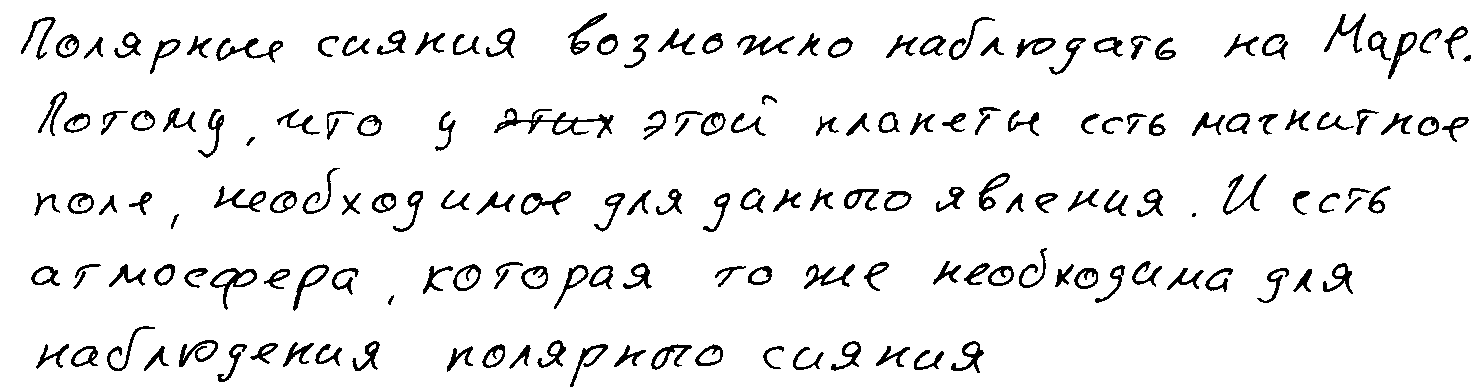 Полярные сияния возможно наблюдать на Марсе.
Потому, что у этих этой планеты есть магнитное
поле, необходимое для данного явления. И есть
атмосфера, которая то же необходима для
наблюдения полярного сияния